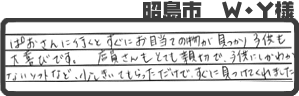 昭島市　W・Y様
ぱおさんに行くと すぐにお目当ての物が見つかり子供も
大喜びです。 店員さんもとても親切で、子供にしかわか
ないソフトなど、少し きいてもらっただけで、すぐに見つけてくれました